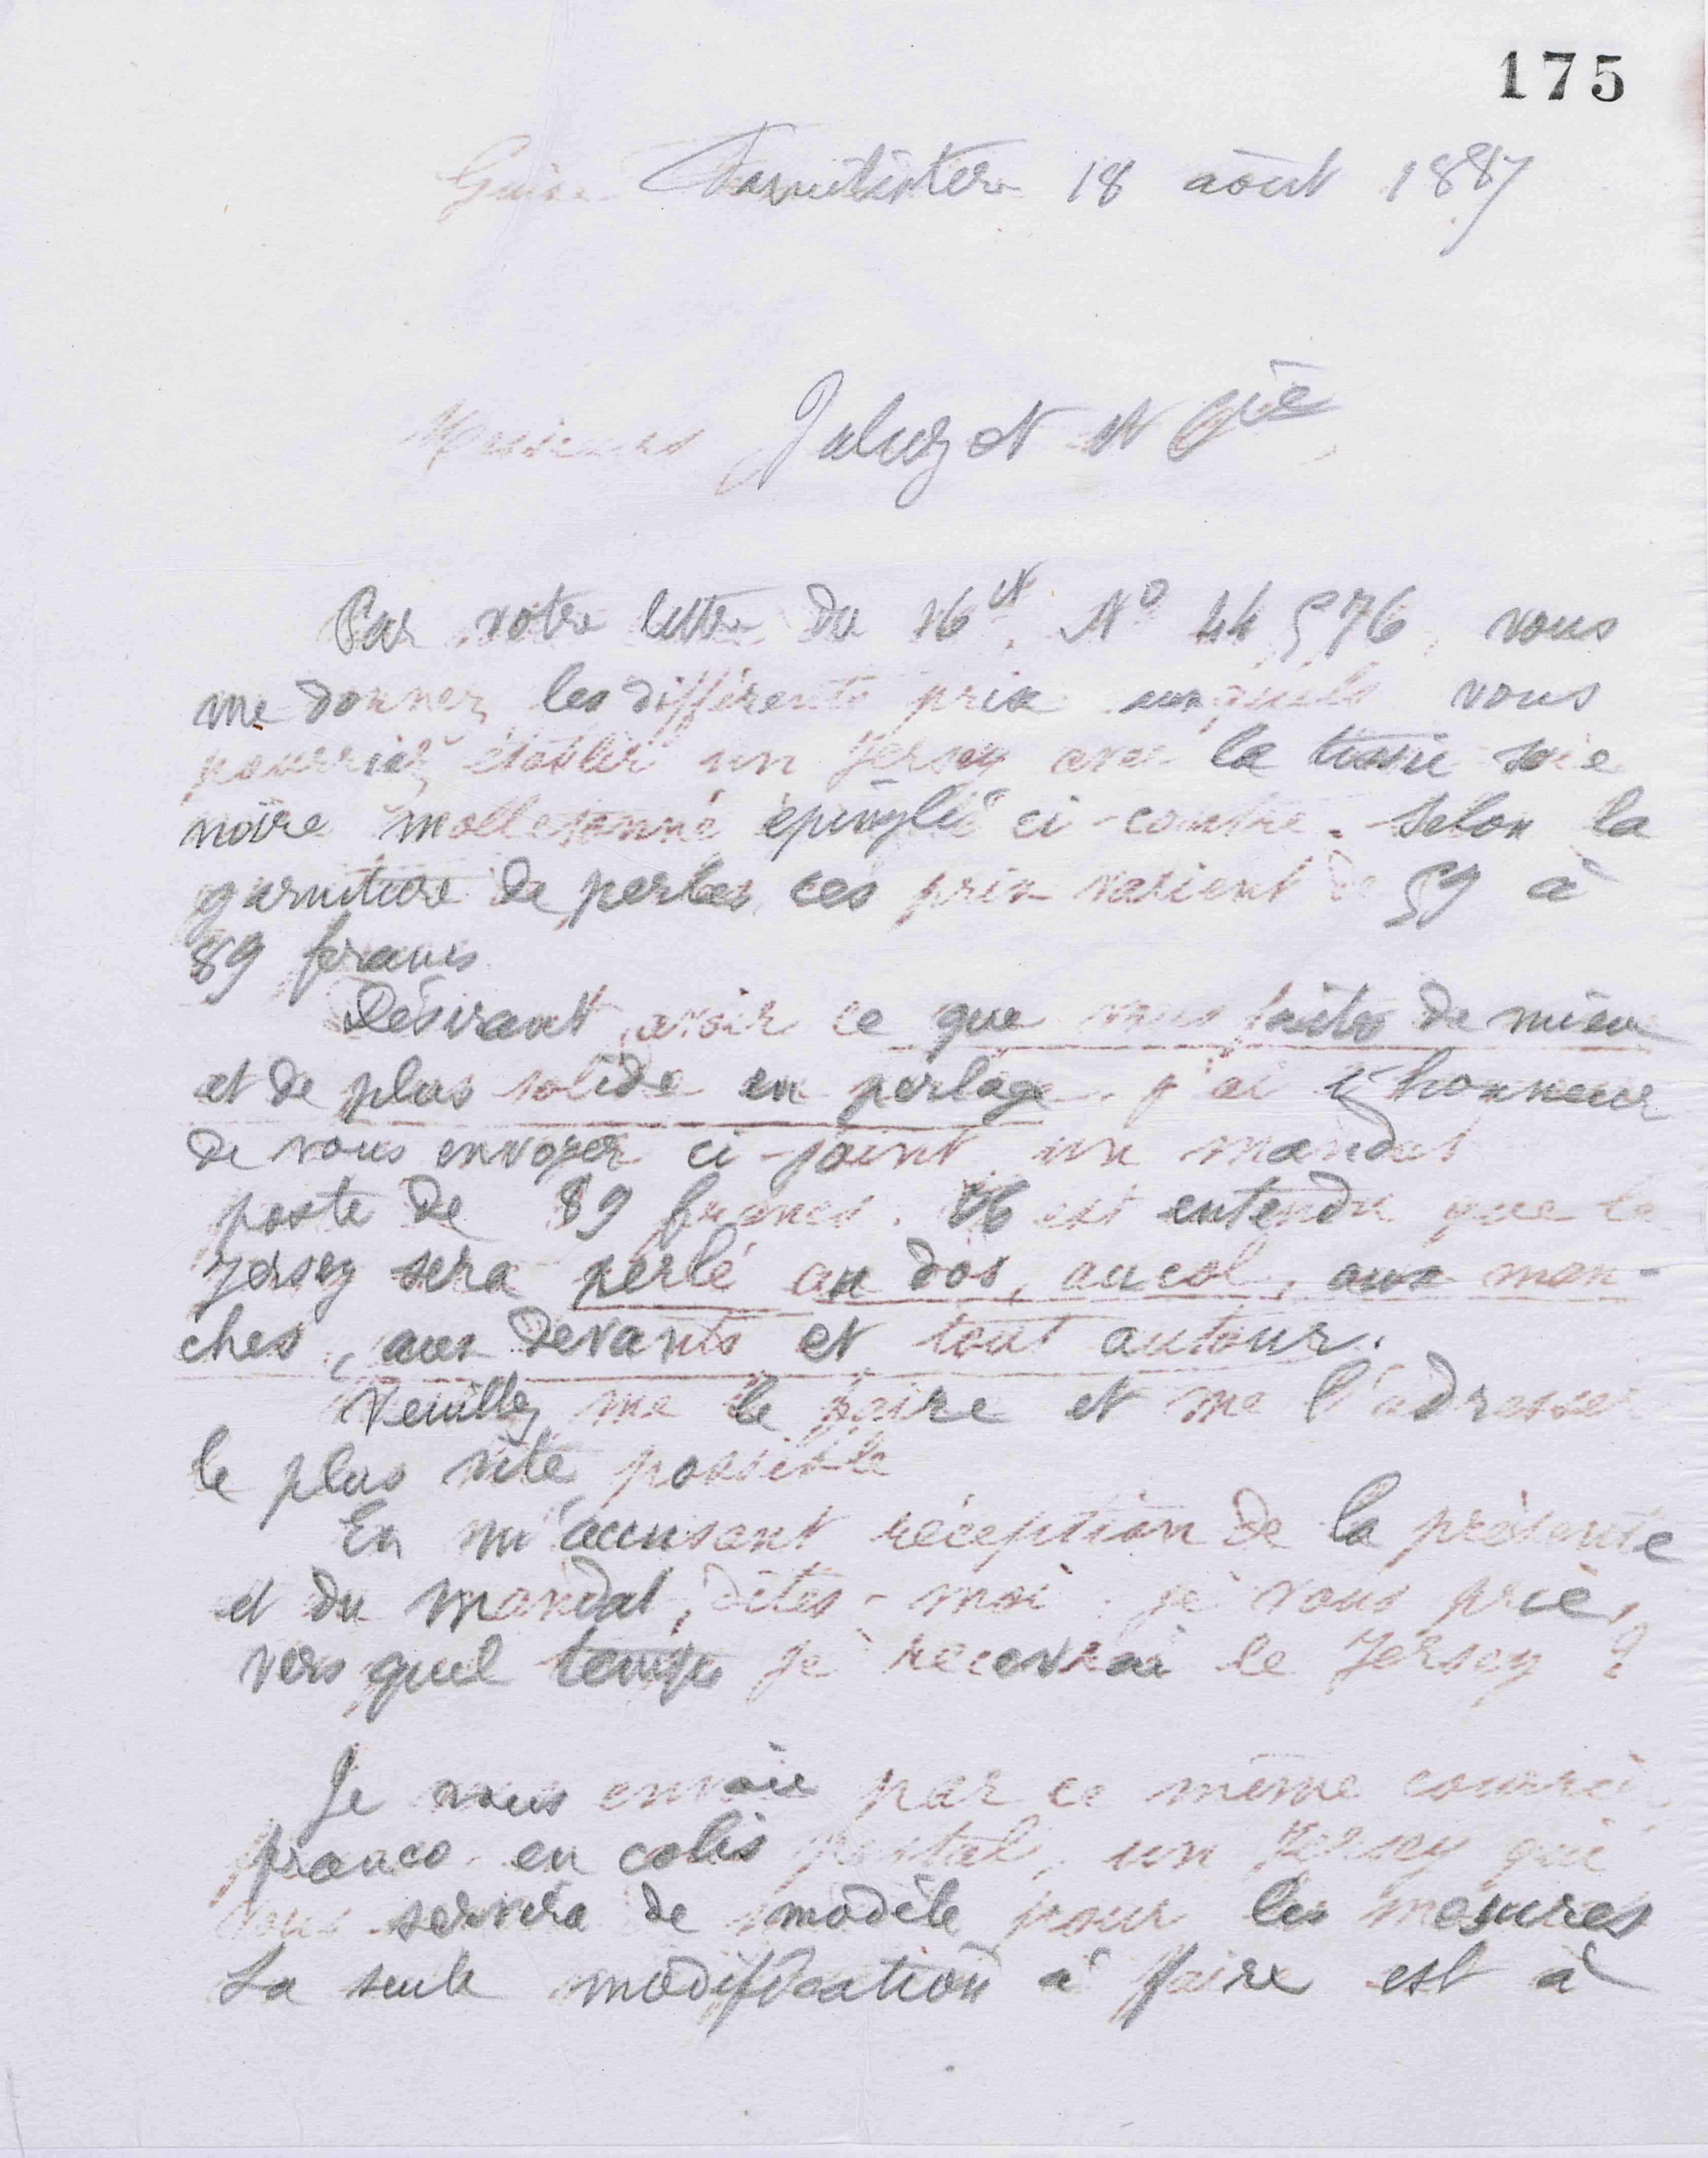 175
Guise Familistère 18 août 1887
Messieurs Jaluzot et Cie,
Par votre lettre du 16 ct, No 44576, vous
me donnez les différents prix auxquels vous
pourriez établir un Jersey avec le tissu soie
noire molletonné épinglé ci-contre. Selon la
garniture de perles, ces prix varient de 59 à
89 francs.
Désirant avoir ce que vous faites de mieux
et de plus solide en perlage, j'ai l'honneur
de vous envoyer ci-joint un mandat
poste de 89 francs. Il est entendu que le
Jersey sera perlé au dos, au col, aux man-
ches, aux devants et tout autour.
Veuillez me le faire et me l'adresser
le plus vite possible
En m'accusant réception de la présente
et du mandat, dites-moi, je vous prie,
vers quel temps je recevrai le Jersey ?
Je vous envoie par ce même courrier,
franco en colis postal, un Jersey qui
vous servira de modèle pour les mesures
La seule modification à faire est à